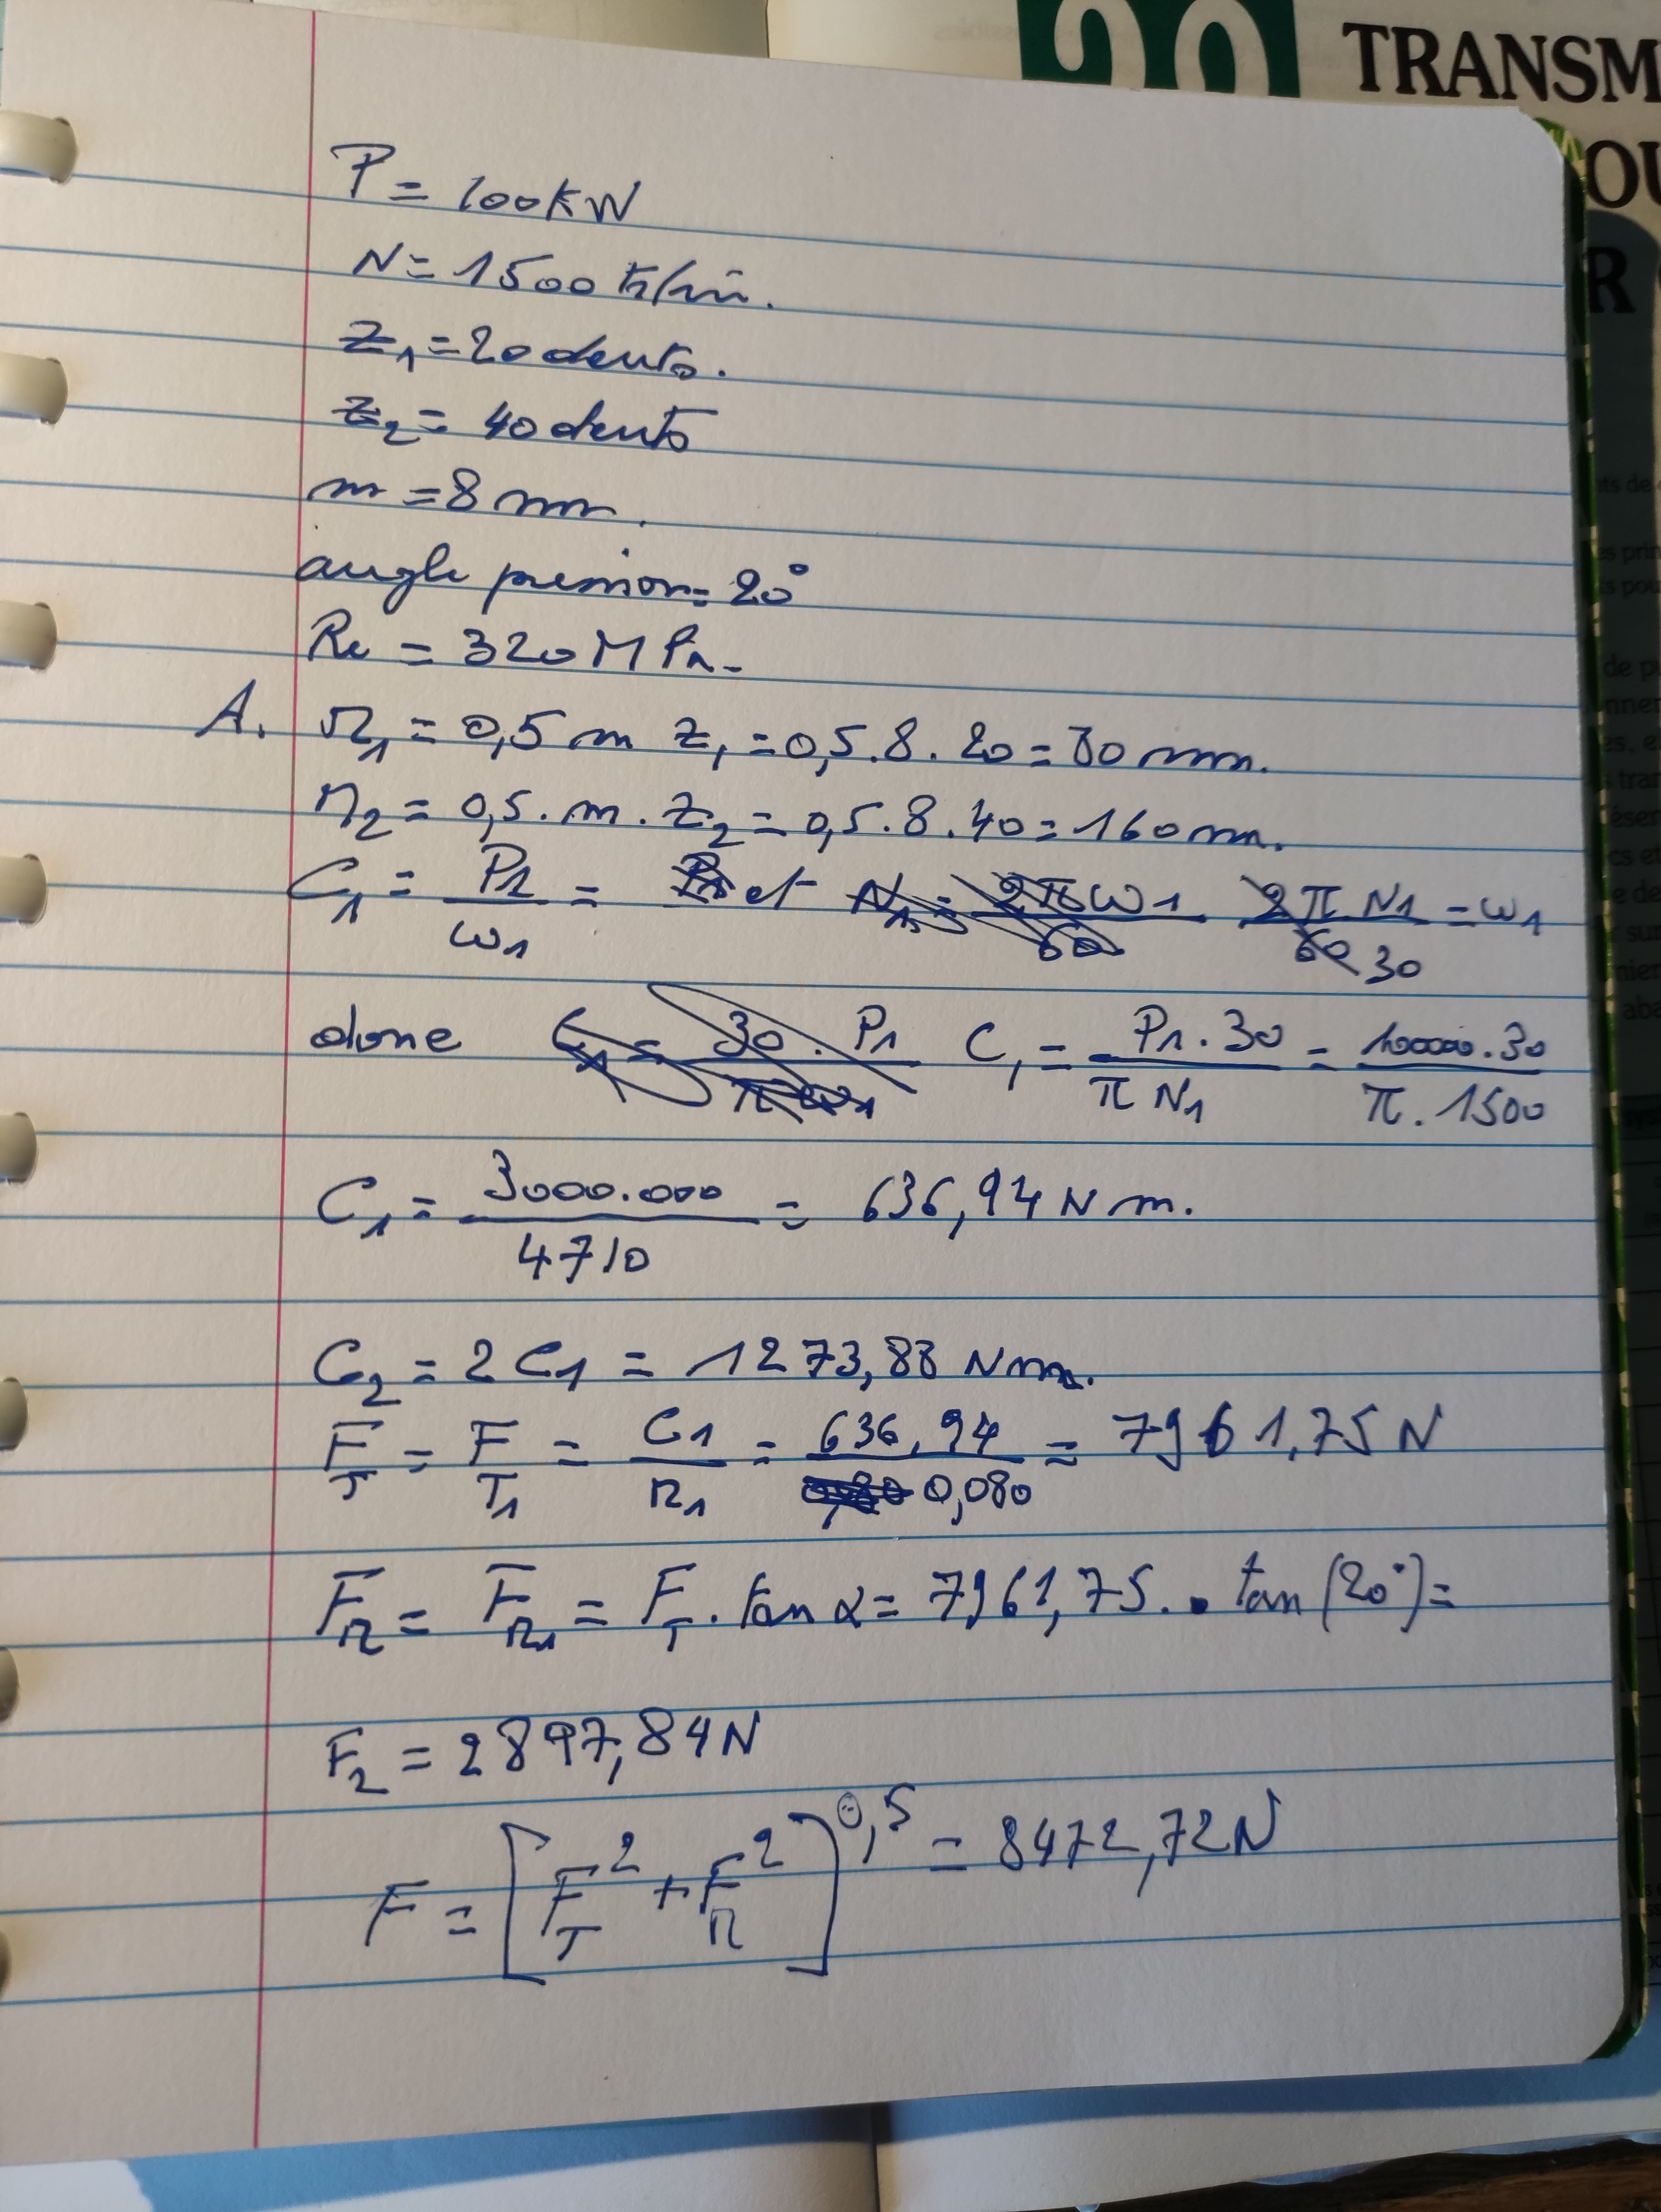 TRANSM
OU
R
P = 100kW
N = 1500 tr/min.
Z1 = 20 dents.
Z2 = 40 dents
m = 8 mm.
angle pression = 20°
Re = 320 MPa.
A. r1 = 0,5 m z1 = 0,5.8.20 = 80 mm.
r2 = 0,5.m.z2 = 0,5.8.40 = 160 mm.
C1 = P1/ω1 = et 2πN1/60 30 = ω1
donc C1 = P1.30/πN1 = 100000.30/π.1500
C1 = 3000.000/4710 = 636,94 N m.
C2 = 2 C1 = 1273,88 Nm.
FT = FT1 = C1/r1 = 636,94/0,080 = 7961,75 N
FR = FR1 = FT.tan α = 7961,75.tan(20°) =
F2 = 2897,84 N
F = [FT² + FR²]^0,5 = 8472,72 N